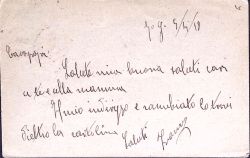 5/5/18
Caro papà
Salute mia buona saluti cari
a te e alla mamma
Il mio indirizzo è cambiato lo trovi
dietro la cartolina
Saluti